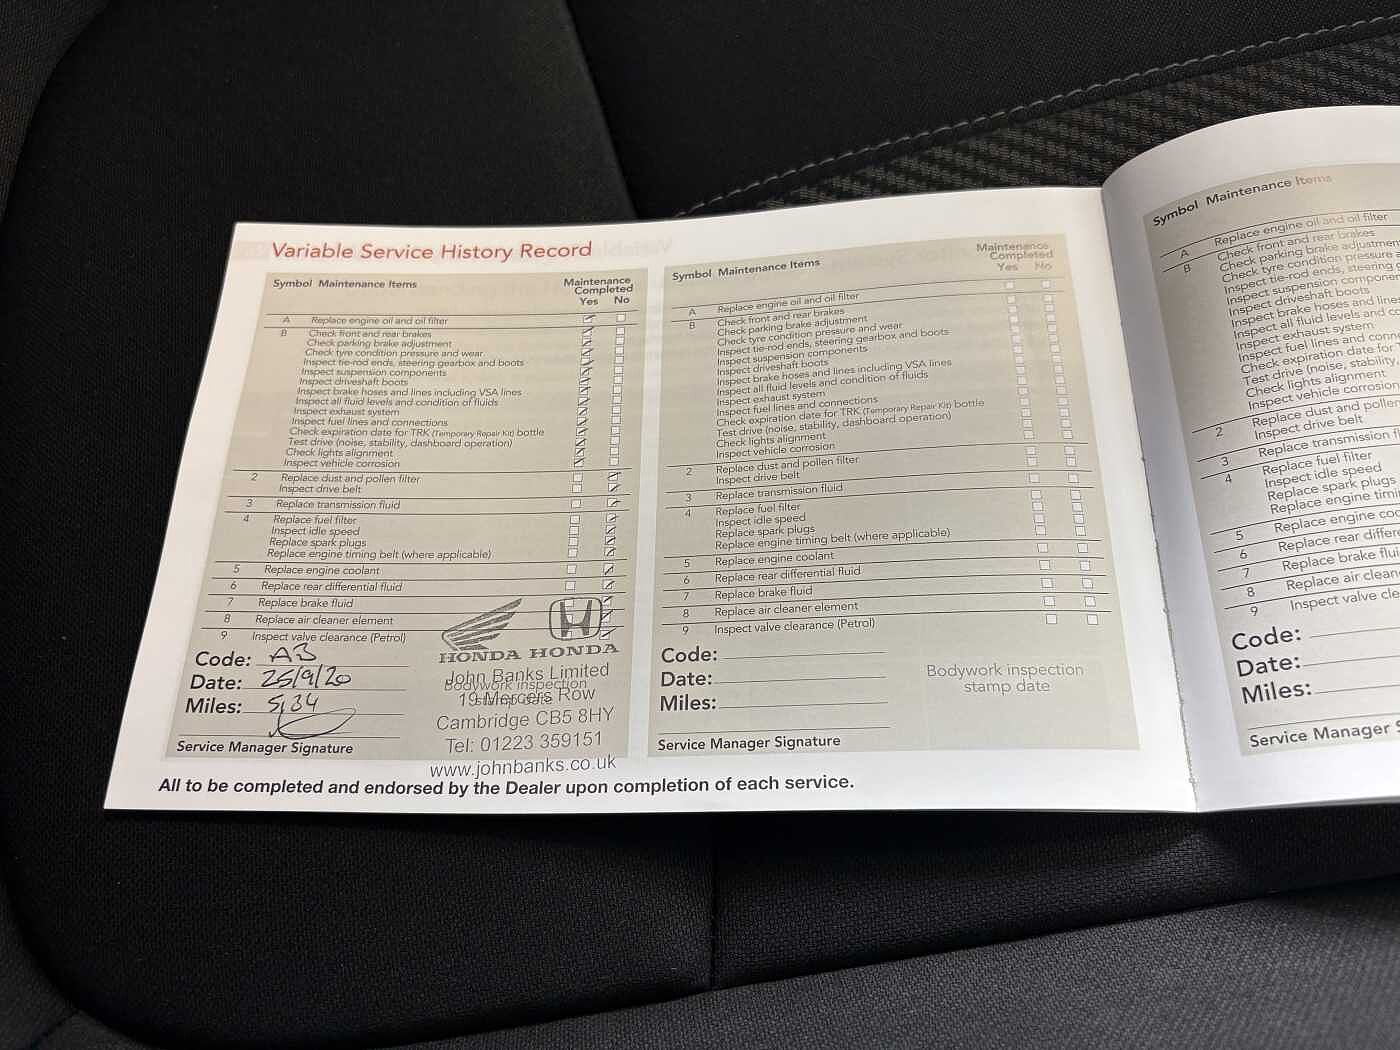 Variable Service History Record
Symbol Maintenance Items
Maintenance
Completed
Yes No
A Replace engine oil and oil filter
B Check front and rear brakes
Check parking brake adjustment
Check tyre condition pressure and wear
Inspect tie-rod ends, steering gearbox and boots
Inspect suspension components
Inspect driveshaft boots
Inspect brake hoses and lines including VSA lines
Inspect all fluid levels and condition of fluids
Inspect exhaust system
Inspect fuel lines and connections
Check expiration date for TRK (Temporary Repair Kit) bottle
Test drive (noise, stability, dashboard operation)
Check lights alignment
Inspect vehicle corrosion
2 Replace dust and pollen filter
Inspect drive belt
3 Replace transmission fluid
4 Replace fuel filter
Inspect idle speed
Replace spark plugs
Replace engine timing belt (where applicable)
5 Replace engine coolant
6 Replace rear differential fluid
7 Replace brake fluid
8 Replace air cleaner element
9 Inspect valve clearance (Petrol)
Code:
Date: 25/9/20
Miles:
Service Manager Signature
HONDA HONDA
John Banks Limited
Bodywork inspection
stamp date
19 Mercers Row
Cambridge CB5 8HY
Tel: 01223 359151
www.johnbanks.co.uk
Symbol Maintenance Items
Maintenance
Completed
Yes No
A Replace engine oil and oil filter
B Check front and rear brakes
Check parking brake adjustment
Check tyre condition pressure and wear
Inspect tie-rod ends, steering gearbox and boots
Inspect suspension components
Inspect driveshaft boots
Inspect brake hoses and lines including VSA lines
Inspect all fluid levels and condition of fluids
Inspect exhaust system
Inspect fuel lines and connections
Check expiration date for TRK (Temporary Repair Kit) bottle
Test drive (noise, stability, dashboard operation)
Check lights alignment
Inspect vehicle corrosion
2 Replace dust and pollen filter
Inspect drive belt
3 Replace transmission fluid
4 Replace fuel filter
Inspect idle speed
Replace spark plugs
Replace engine timing belt (where applicable)
5 Replace engine coolant
6 Replace rear differential fluid
7 Replace brake fluid
8 Replace air cleaner element
9 Inspect valve clearance (Petrol)
Code:
Date:
Miles:
Service Manager Signature
Bodywork inspection
stamp date
All to be completed and endorsed by the Dealer upon completion of each service.
Symbol Maintenance Items
A Replace engine oil and oil filter
B Check front and rear brakes
Check parking brake
Check tyre condition pressure
Inspect tie-rod ends, steering
Inspect suspension
Inspect driveshaft boots
Inspect brake hoses and lines
Inspect all fluid levels and
Inspect exhaust system
Inspect fuel lines and
Check expiration date for
Test drive (noise, stability,
Check lights alignment
Inspect vehicle corrosion
2 Replace dust and pollen
Inspect drive belt
3 Replace transmission
4 Replace fuel filter
Inspect idle speed
Replace spark plugs
Replace engine timing
5 Replace engine
6 Replace rear
7 Replace brake
8 Replace air
9 Inspect valve
Code:
Date:
Miles:
Service Manager